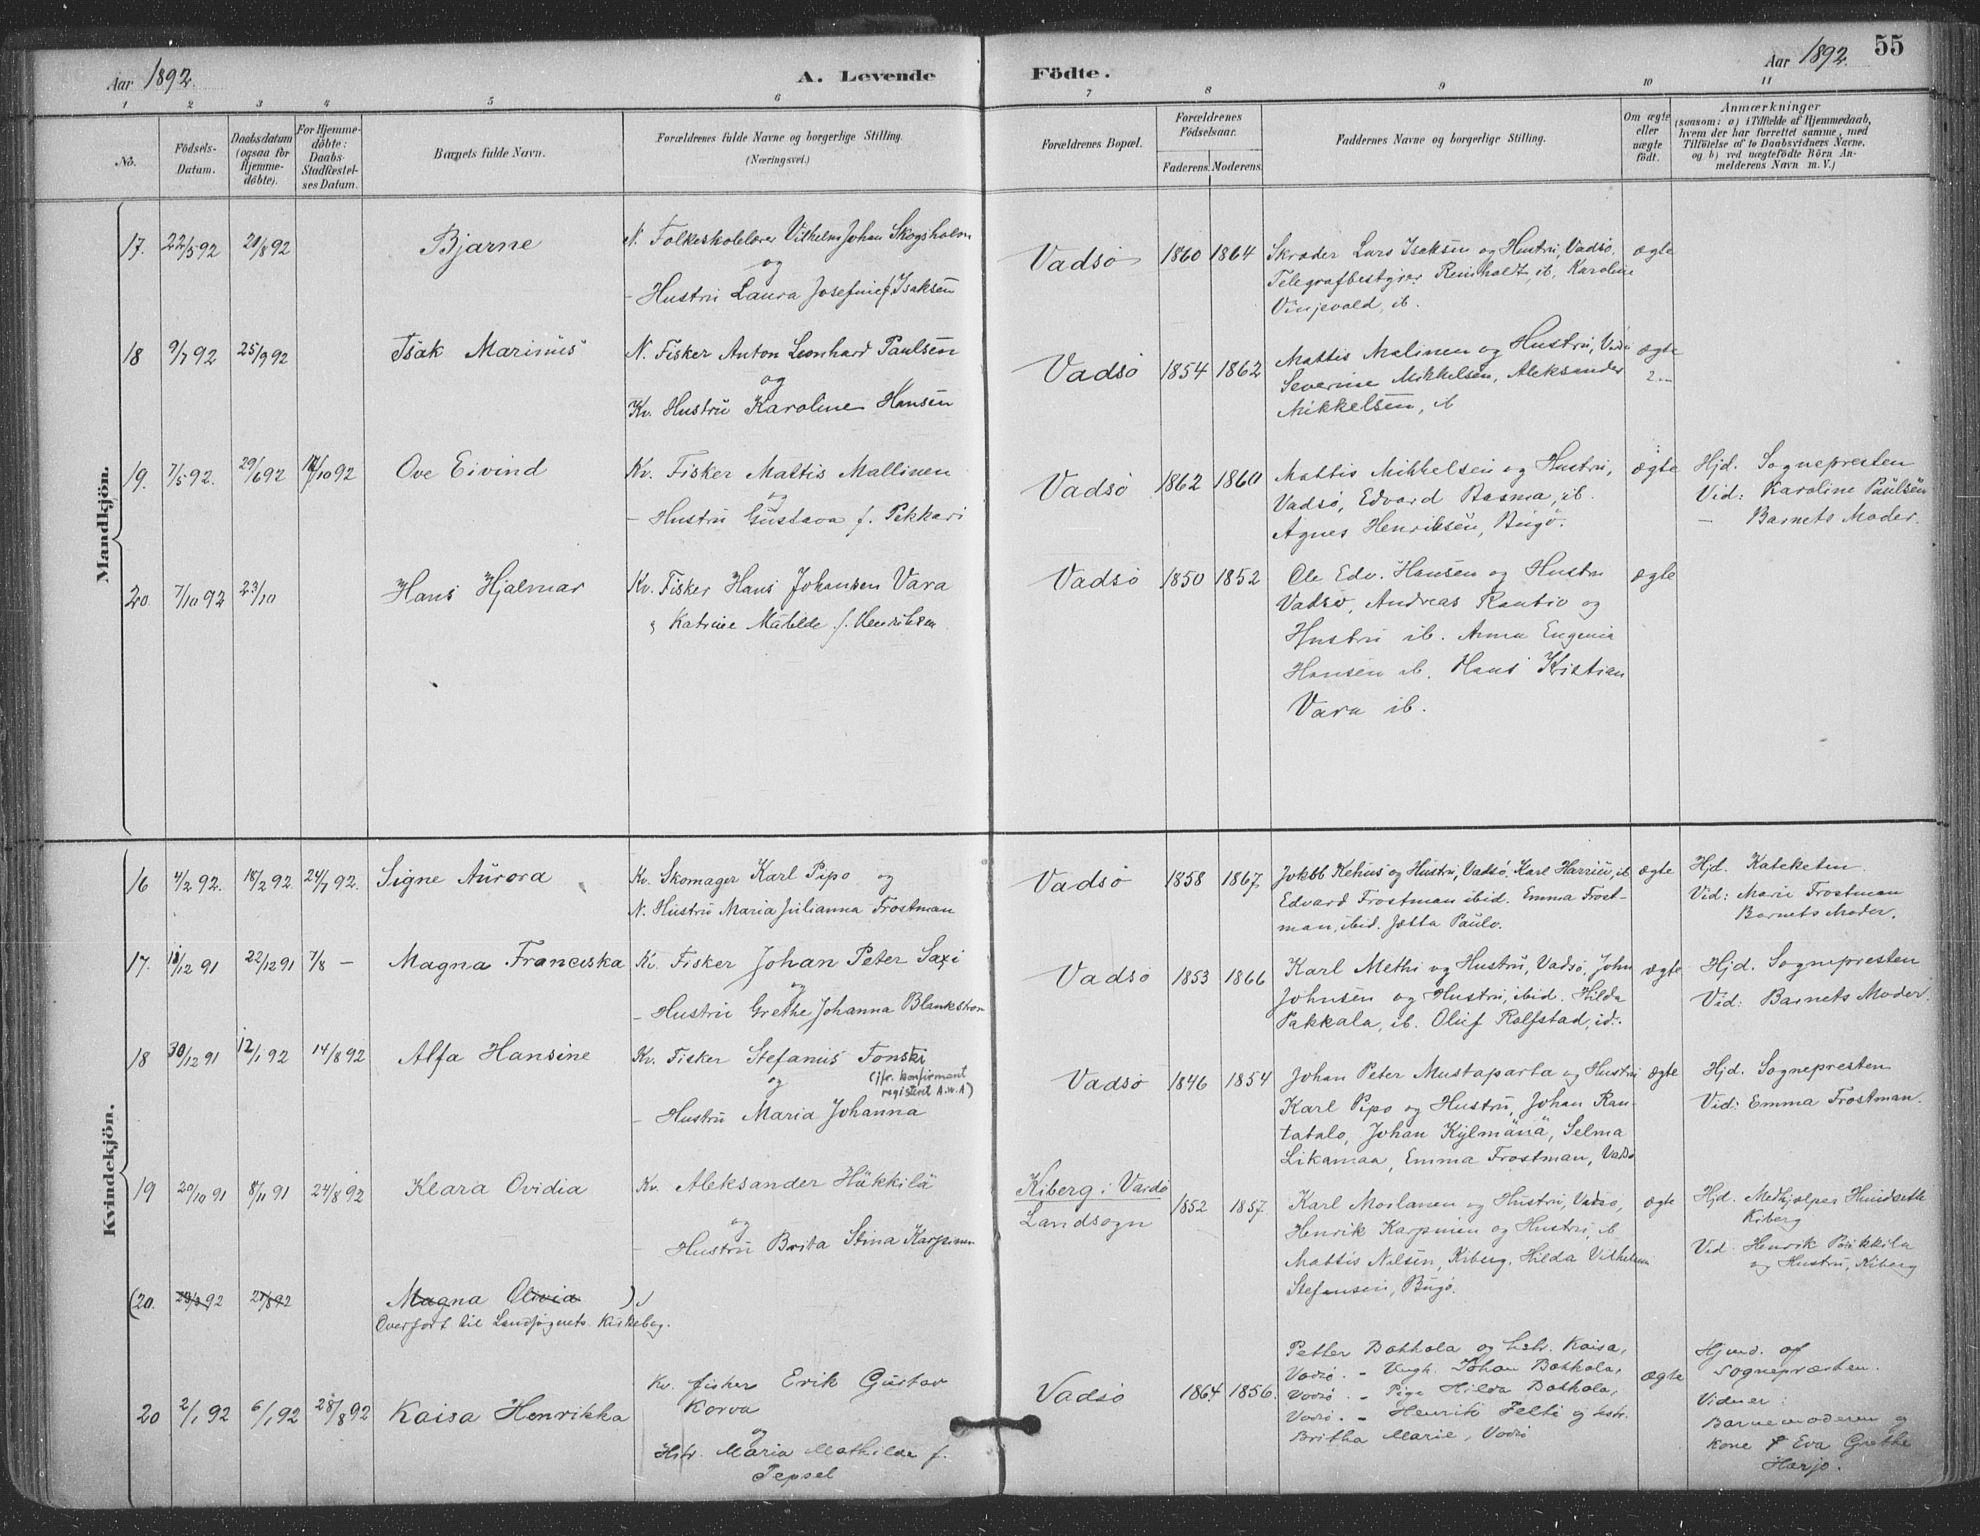 Aar 1892. A. Levende Födte. Aar 1892. 55
1 2 3 4 5 6 7 8 9 10 11
No.
Födsels-
Datum.
Daabsdatum
(ogsaa for
Hjemme-
döbte).
For Hjemme-
döbte:
Daabs-
Stadfæstel-
ses Datum.
Barnets fulde Navn.
Forældrenes fulde Navne og borgerlige Stilling.
(Næringsvei.)
Forældrenes Bopæl.
Forældrenes
Födselsaar.
Faderens. Moderens.
Faddernes Navne og borgerlige Stilling.
Om ægte
eller
uægte
födt.
Anmærkninger
(saasom: a) i Tilfælde af Hjemmedaab,
hvem der har forrettet samme, med
Tilföielse af to Daabsvidners Navne,
og b) ved uægtefödte Börn An-
melderens Navn m. V.)
Mandkjön.
17. 22/5 92 21/8 92 Bjarne
N. Folkeskolelærer Vilhelm Johan Skogsholm
og
– Hustru Laura Josefine f. Isaksen
Vadsö 1860 1864
Skræder Lars Isaksen og Hustru, Vadsö,
Telegrafbestyrer Reinholdt, ib, Karoline
Vinjevold, ib.
ægte
18 9/7 92 25/9 92 Isak Marinus
N. Fisker Anton Leonhard Paulsen
og
Kv. Hustru Karoline Hansen
Vadsö 1854 1862
Mattis Malinen og Hustru, Vadsö
Severine Mikkelsen, Aleksander
Mikkelsen, ib
ægte
19. 7/5 92. 29/6 92 /10 92 Ove Eivind
Kv. Fisker Mattis Mallinen
og
– Hustru Gustava f. Pekkari
Vadsö 1862 1860
Mattis Mikkelsen og Hustru,
Vadsö, Edvard Basma, ib.
Agnes Henriksen, Bugö.
ægte
Hjd. Sognepresten
Vid: Karoline Paulsen
– Barnets Moder.
20 7/10 92 23/10 Hans Hjalmar
Kv. Fisker Hans Johansen Vara
Katrine Matilde f. Henriksen
Vadsö 1850 1852
Ole Edv. Hansen og Hustru
Vadsö, Andreas Rautio og
Hustru ib. Anna Eugenia
Hansen ib. Hans Kristian
Vara ib.
ægte
Kvindekjön.
16 4/2 92. 18/2 92 24/7 92. Signe Aurora
Kv. Skomager Karl Pipo og
N. Hustru Maria Julianna Frostman
Vadsö 1858 1867
Jakob Kehus og Hustru, Vadsö, Karl Harriu, ib
Edvard Frostman ibid. Emma Frost-
man, ibid. Jætta Paulo.
ægte
Hjd. Kateketen.
Vid: Marie Frostman
Barnets Moder.
17. /12 91 22/12 91 7/8 – Magna Franciska
Kv. Fisker Johan Peter Saxi
og
– Hustru Grethe Johanna Blankstrom
Vadsö 1853 1866
Karl Methi og Hustru, Vadsö, John
Johnsen og Hustru, ibid. Hilda
Pakkala, ib. Oluf Rolfstad, id.
ægte
Hjd. Sognepresten
Vid: Barnets Moder.
18 30/12 91 12/1 92 14/8 92 Alfa Hansine
Kv. Fisker Stefanus Tonski
(jfr. konfirment
registeret A.W.A)
og
– Hustru Maria Johanna
Vadsö 1846 1854
Johan Peter Mustaparta og Hustru
Karl Pipo og Hustru, Johan Rau-
tatalo, Johan Kylmänä, Selma
Likamaa, Emma Frostman, Vadsö
ægte
Hjd. Sognepresten
Vid: Emma Frostman.
19 20/10 91 8/11 91 24/8 92 Klara Ovidia
Kv. Aleksander Häkkilä
og
– Hustru Brita Stina Karpinen
Kiberg i Vardö
Landsogn
1852 1857.
Karl Moilanen og Hustru, Vadsö,
Henrik Karpinen og Hustru, ib
Mattis Nilsen, Kiberg. Hilda Vilhelmine
Stefansen, Bugö.
ægte
Hjd. Medhjælper
Kiberg
Vid. Henrik
og Hustru, Kiberg
(20. 23/3 92 21/8 92 Magna Olivia )
Overfört til Landsognets Kirkebog.
20 2/1 92 6/1 92 28/8 92 Kaisa Henrikka
Kv. fisker Erik Gustav
Korva
og
Hstr. Maria Mathilde f.
Pepsel
Vadsö 1864 1856.
Petter Bakkala og hstr. Kaisa,
Vadsö. – Ungk. Johan Bakkala,
Vadsö. – Pige Hilda Bakkala,
Vadsö. – Henrik Felti og hstr.
Britha Marie, Vadsö
ægte
Hjmd. af
Sognepræsten.
Vidner:
Barnemoderen og
Kone Eva Grethe
Harjo.